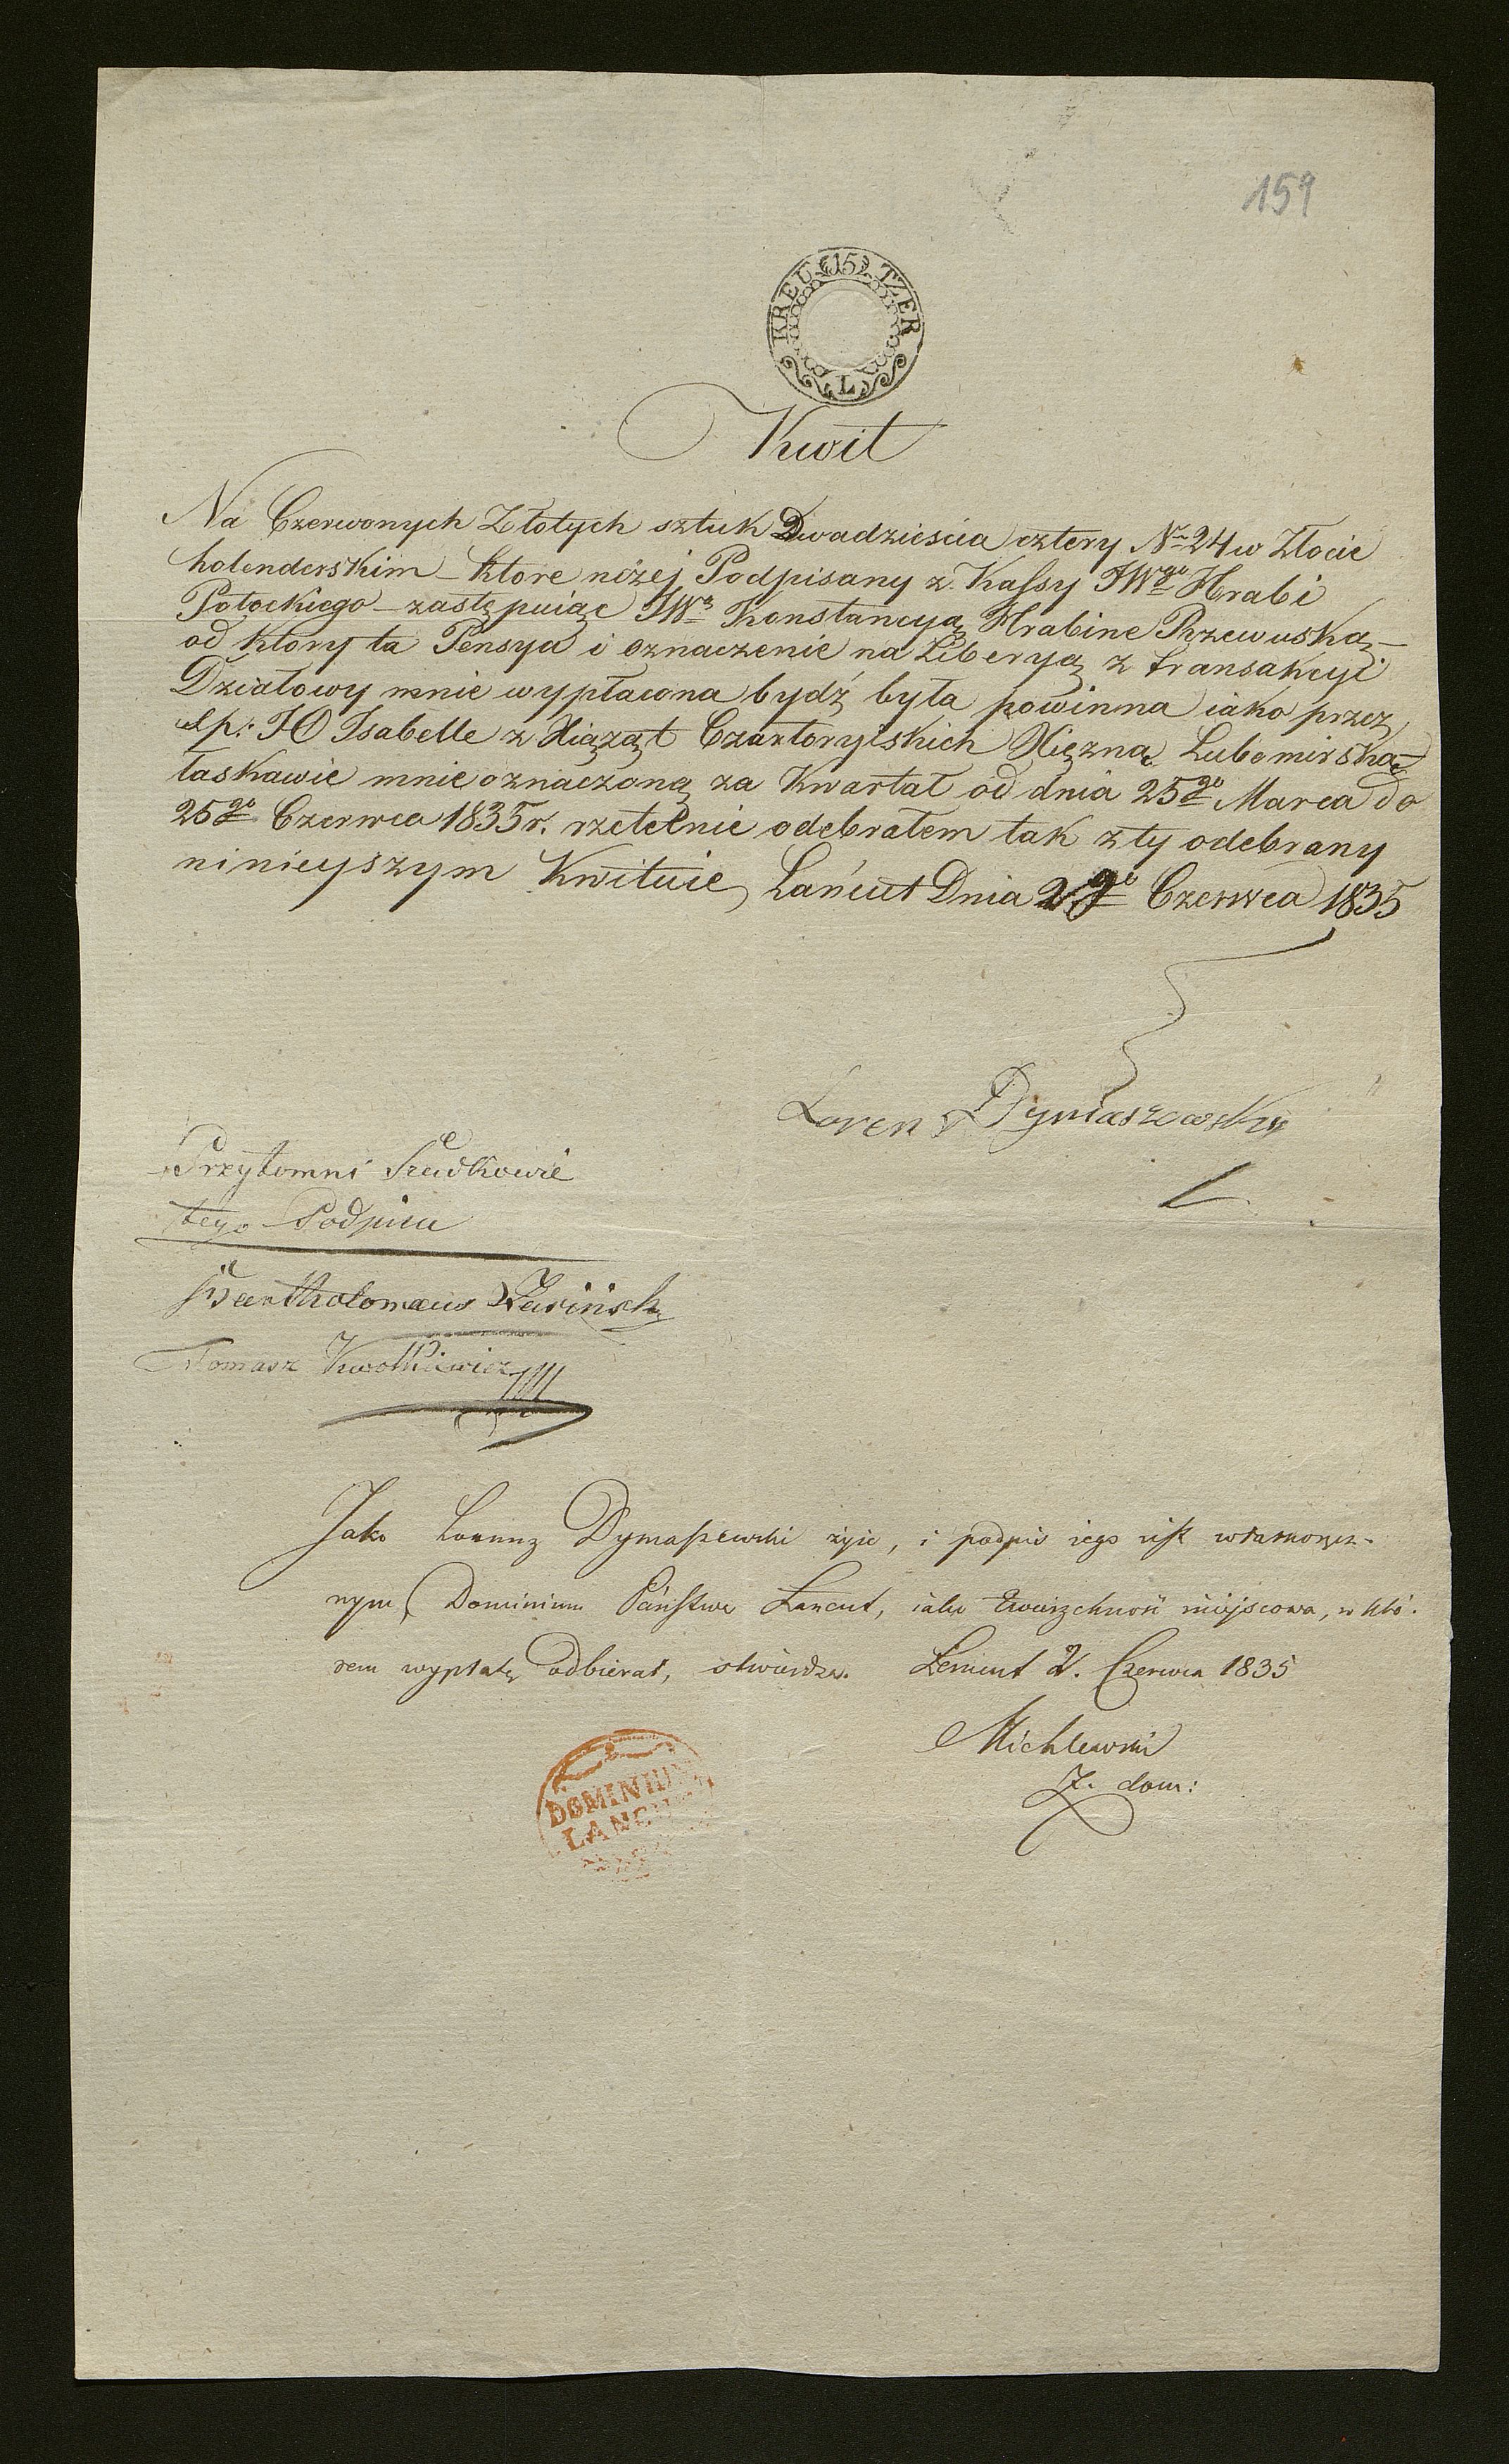 159
KREU 15 TZER
L
Kwit
Na Czerwonych Złotych sztuk Dwadzieścia cztery Nr 24 w Złocie
holenderskim – ktore niżej Podpisany z Kassy JWgo Hrabi
Potockiego – zastępuiąc JWą Konstancyą Hrabine Rzewuską –
od ktory ta Pensya i oznaczenie na Liberyą z transakcyi
Działowy mnie wypłacona bydź była powinna iako przez
Sp: JO Isabelle z Xiążąt Czartoryiskich Xiężną Lubomirską
łaskawie mnie oznaczoną za Kwartał od dnia 25go Marca do
25go Czerwca 1835 r. rzetelnie odebrałem tak z ty odebrany
ninieyszym Kwituie, Łańcut Dnia Czerwca 1835
Lorenz Dymaszowsky
Przytomni Swiadkowie
tego Podpisu
Bartholomaus
Tomasz
Jako Lorenz Dymaszewski żyie, i podpis iego iest własnoręcz-
nym, Dominium Państwa Łancut, iako Zwierzchność miejscowa, w któ-
rem wypłatę odbierał, stwierdza. Łancut Czerwca 1835
Michlewski
Z. dom:
DOMINIUM
LANCUT